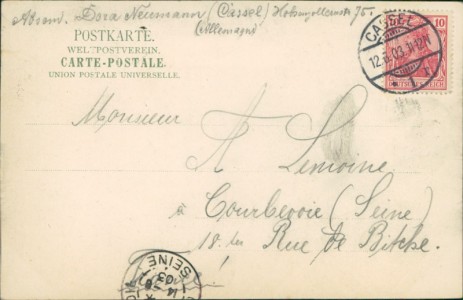 Absm. Dora Neumann / (Cassel) / Hohenzollernstr 75.
(Allemagne)
POSTKARTE.
WELTPOSTVEREIN.
CARTE-POSTALE.
UNION POSTALE UNIVERSELLE.
CASSEL
12.6.03.11-12N
10
Monsieur
A Lemoine
à Courbevoie (Seine)
18 ter Rue de Bitche.
SEINE
14
03